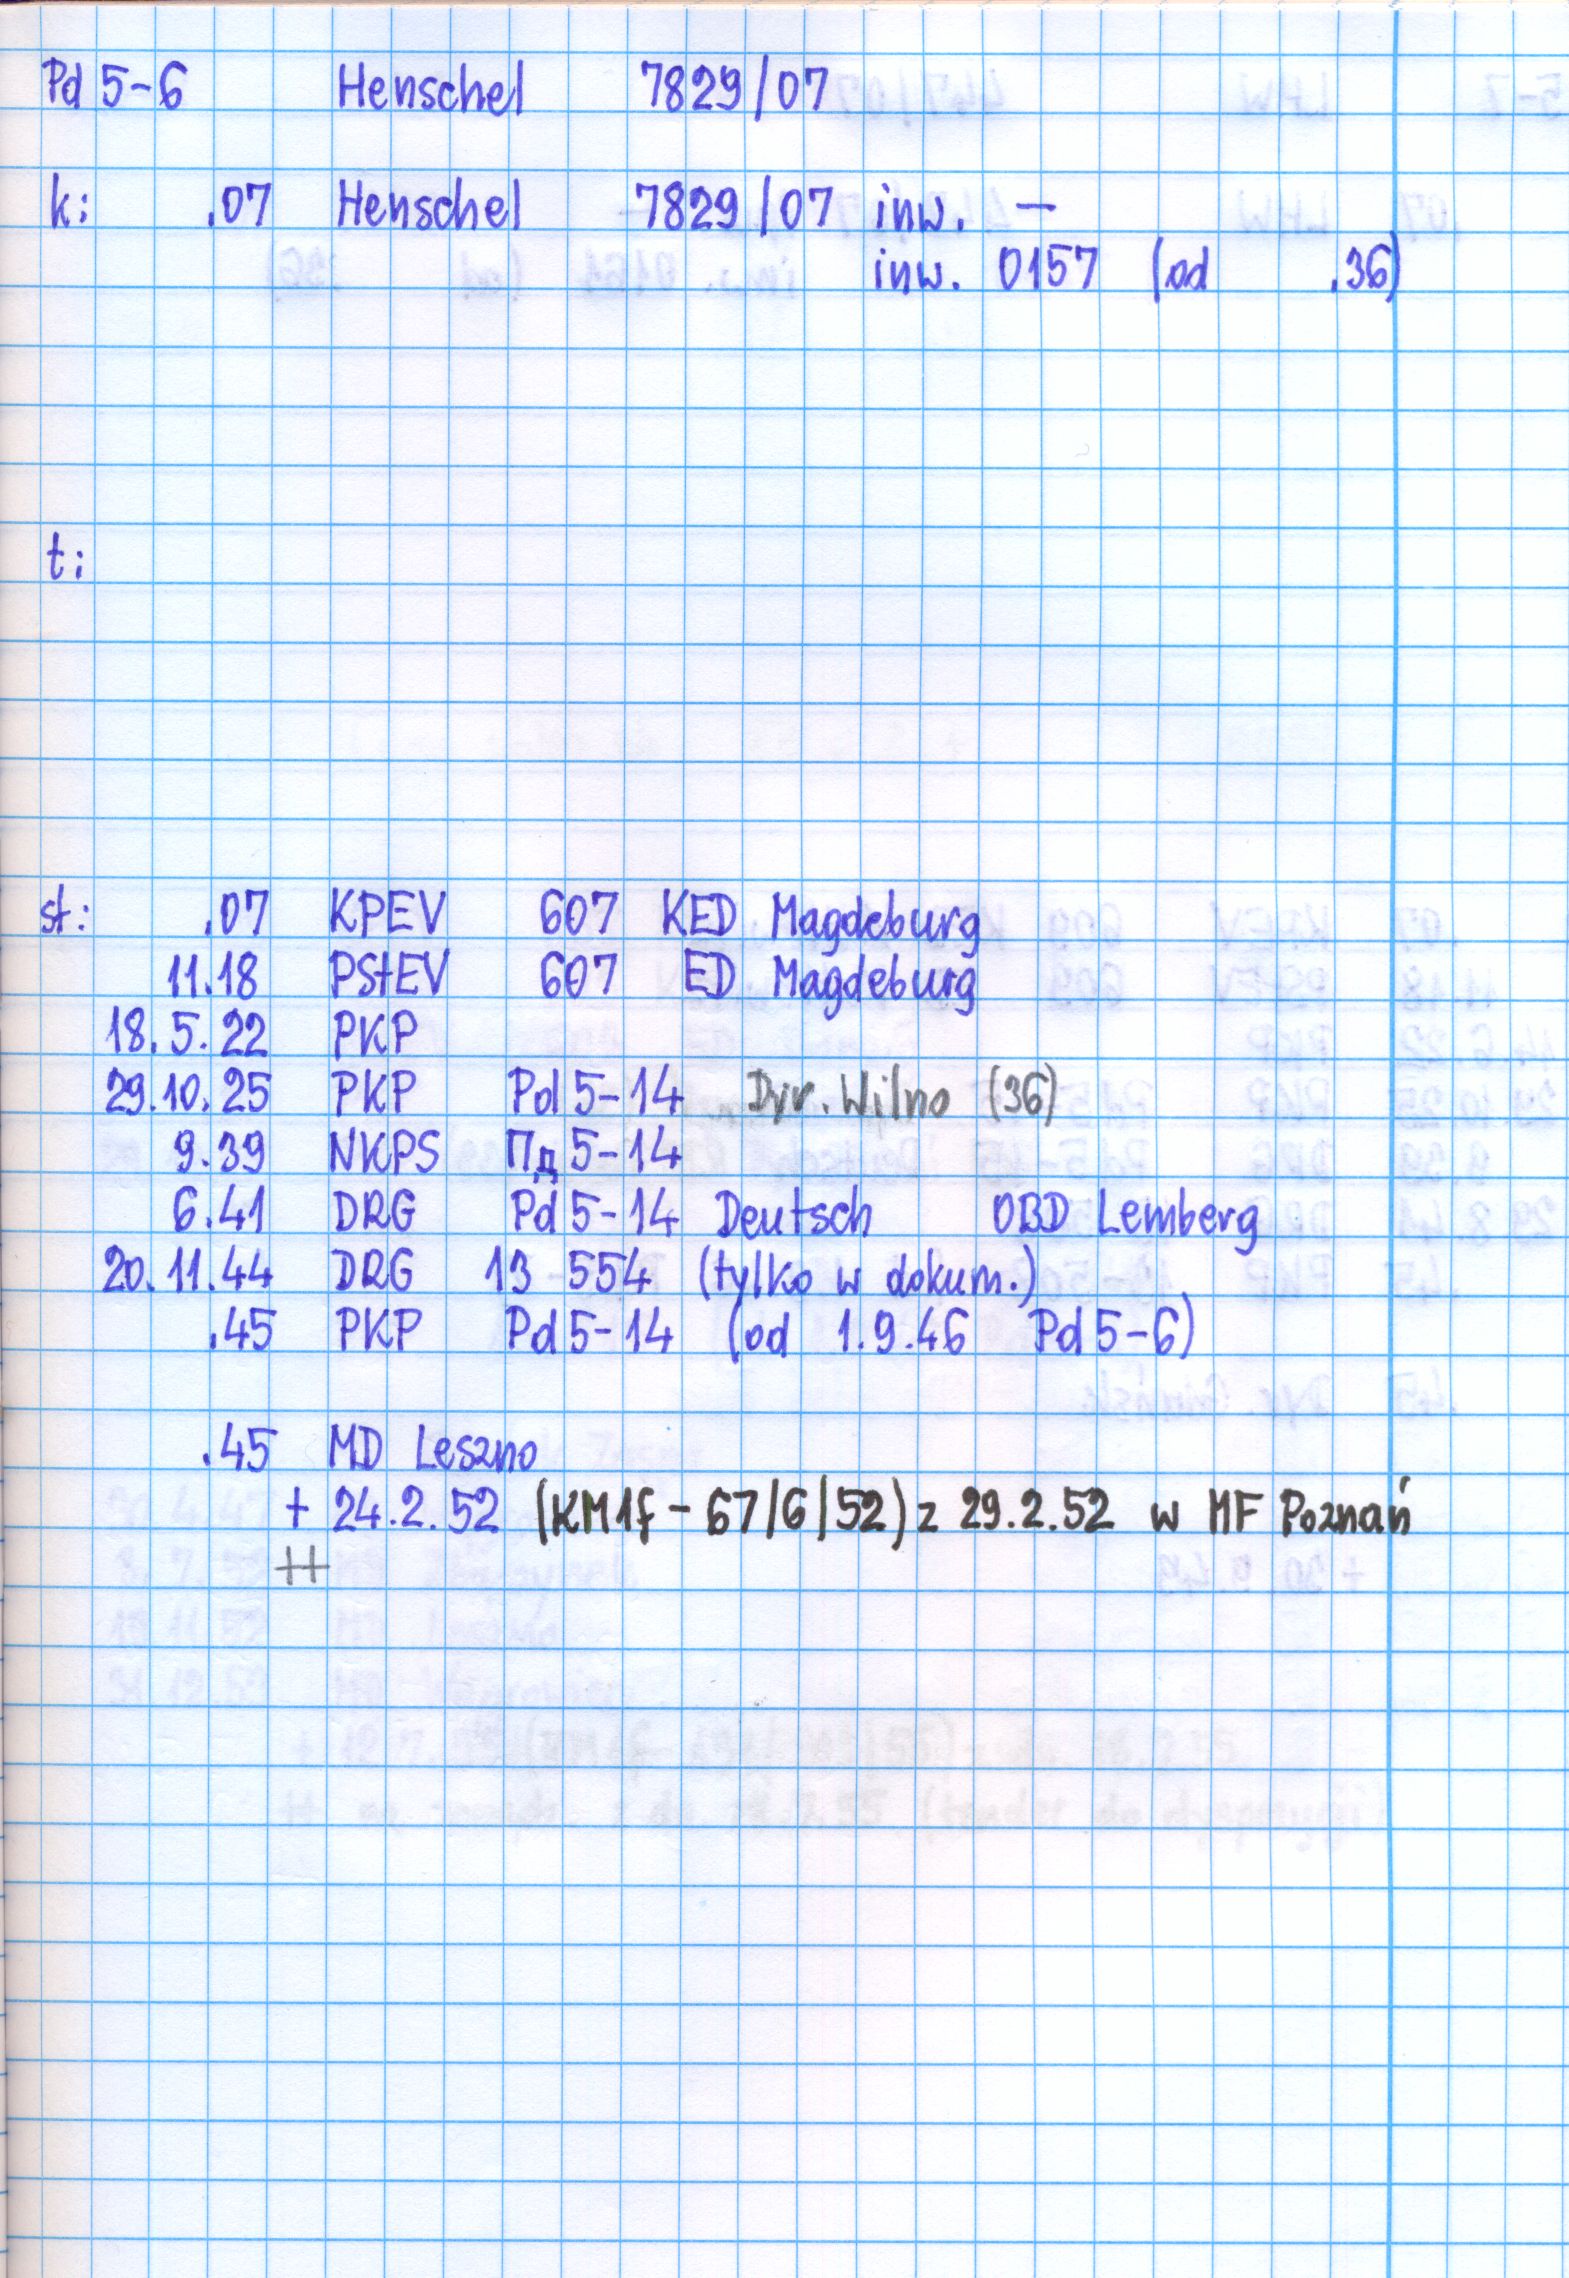 Pd 5-6 Henschel 7829/07
k: .07 Henschel 7829/07 inw. —
inw. 0157 (od .36)
t:
st: .07 KPEV 607 KED Magdeburg
11.18 PStEV 607 ED Magdeburg
18.5.22 PKP
29.10.25 PKP Pd 5-14 Dyr. Wilno (36)
9.39 NKPS Пд 5-14
6.41 DRG Pd 5-14 Deutsch OBD Lemberg
20.11.44 DRG 13 554 (tylko w dokum.)
.45 PKP Pd 5-14 (od 1.9.46 Pd 5-6)
.45 MD Leszno
+ 24.2.52 (KM1f - 67/6/52) z 29.2.52 w MF Poznań
++